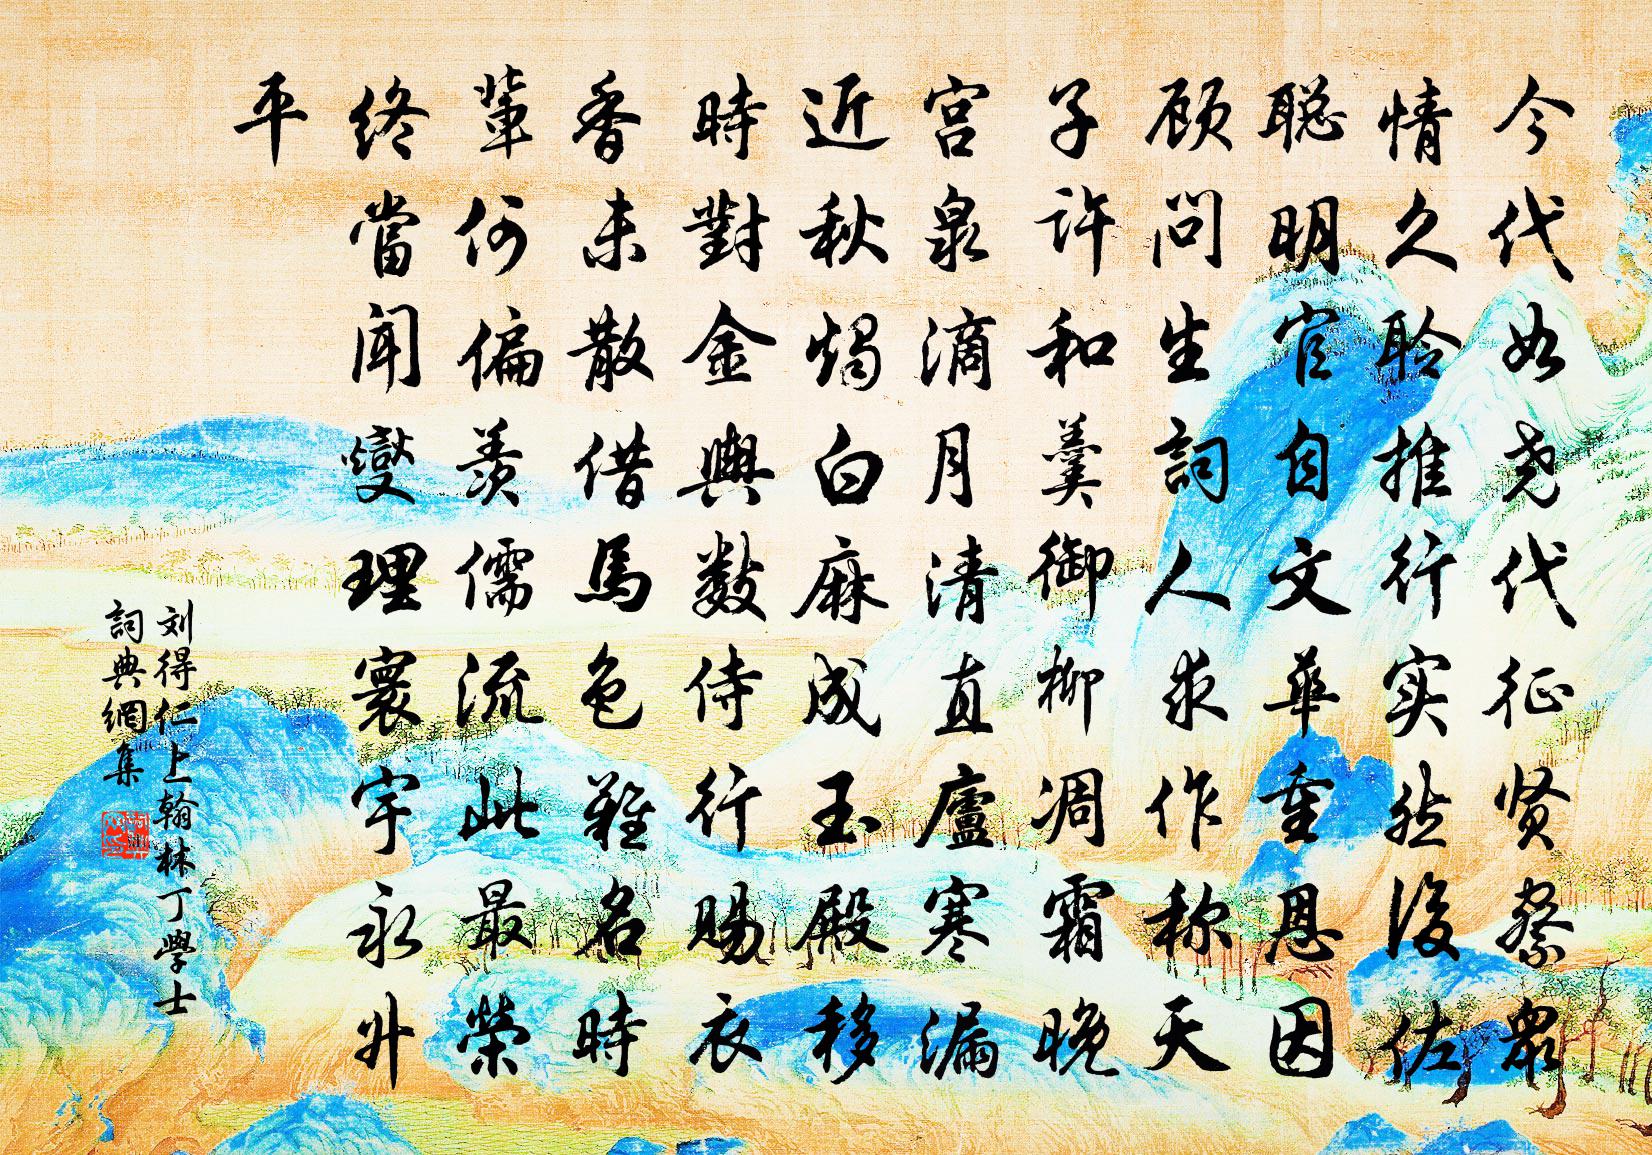 今代如尧代征贤察众
情久聆推行实然後佐
聪明官自文華重恩因
顾问生詞人求作称天
子许和羹御柳凋霜晚
宫泉滴月清直廬寒漏
近秋燭白麻成玉殿移
時對金輿数侍行赐衣
香未散借馬色難名時
輩何偏羨儒流此最榮
终當聞燮理寰宇永升
平
刘得仁上翰林丁學士
詞典網集